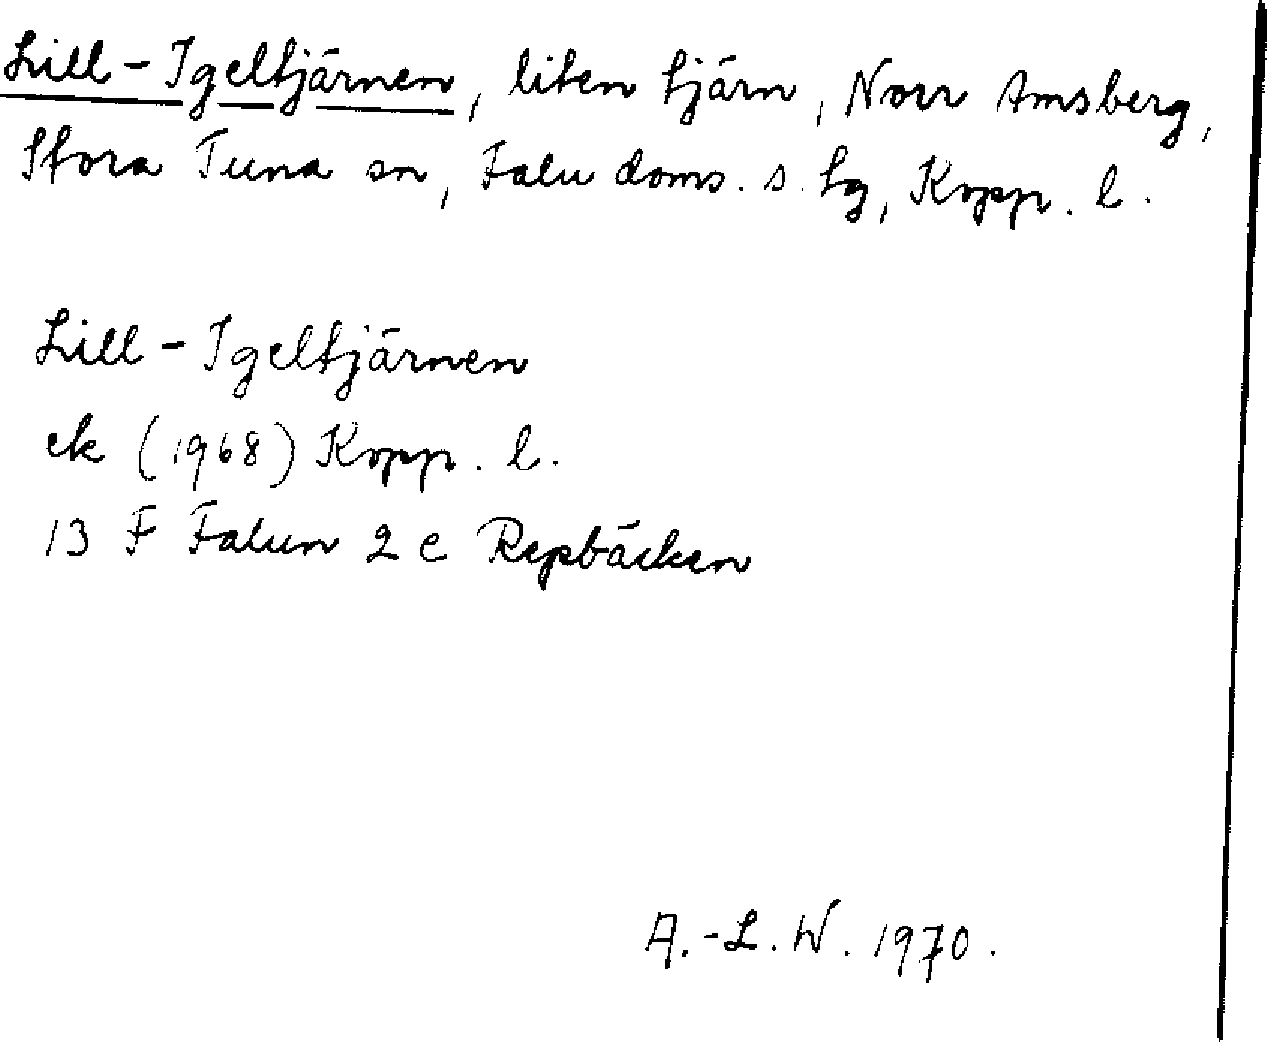 Lill-Igeltjärnen, liten tjärn, Norr Amsberg,
Stora Tuna sn, Falu doms. s. tg, Kopp. l.
Lill-Igeltjärnen
ek (1968) Kopp. l.
13 F Falun 2 e Repbäcken
A.-L. W. 1970.